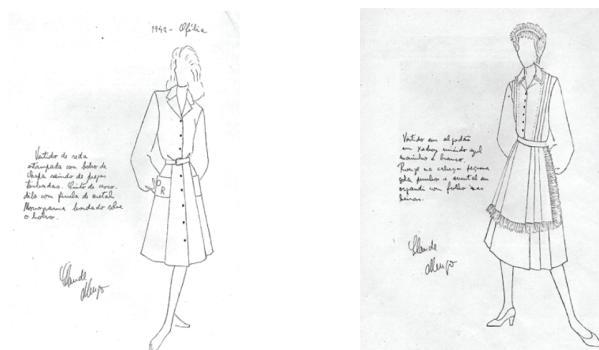 1942 - Ofélia
Vestido de seda
estampada com bolso de
chapa saindo de pregas
Cinto de croco-
dilo com fivela de metal.
Monograma bordado sobre
o bolso.
R
Vestido em algodão
em xadrez miúdo azul
marinho e branco.
na cabeça pequena
gola punhos e avental em
organdi com folho nas
beiras.